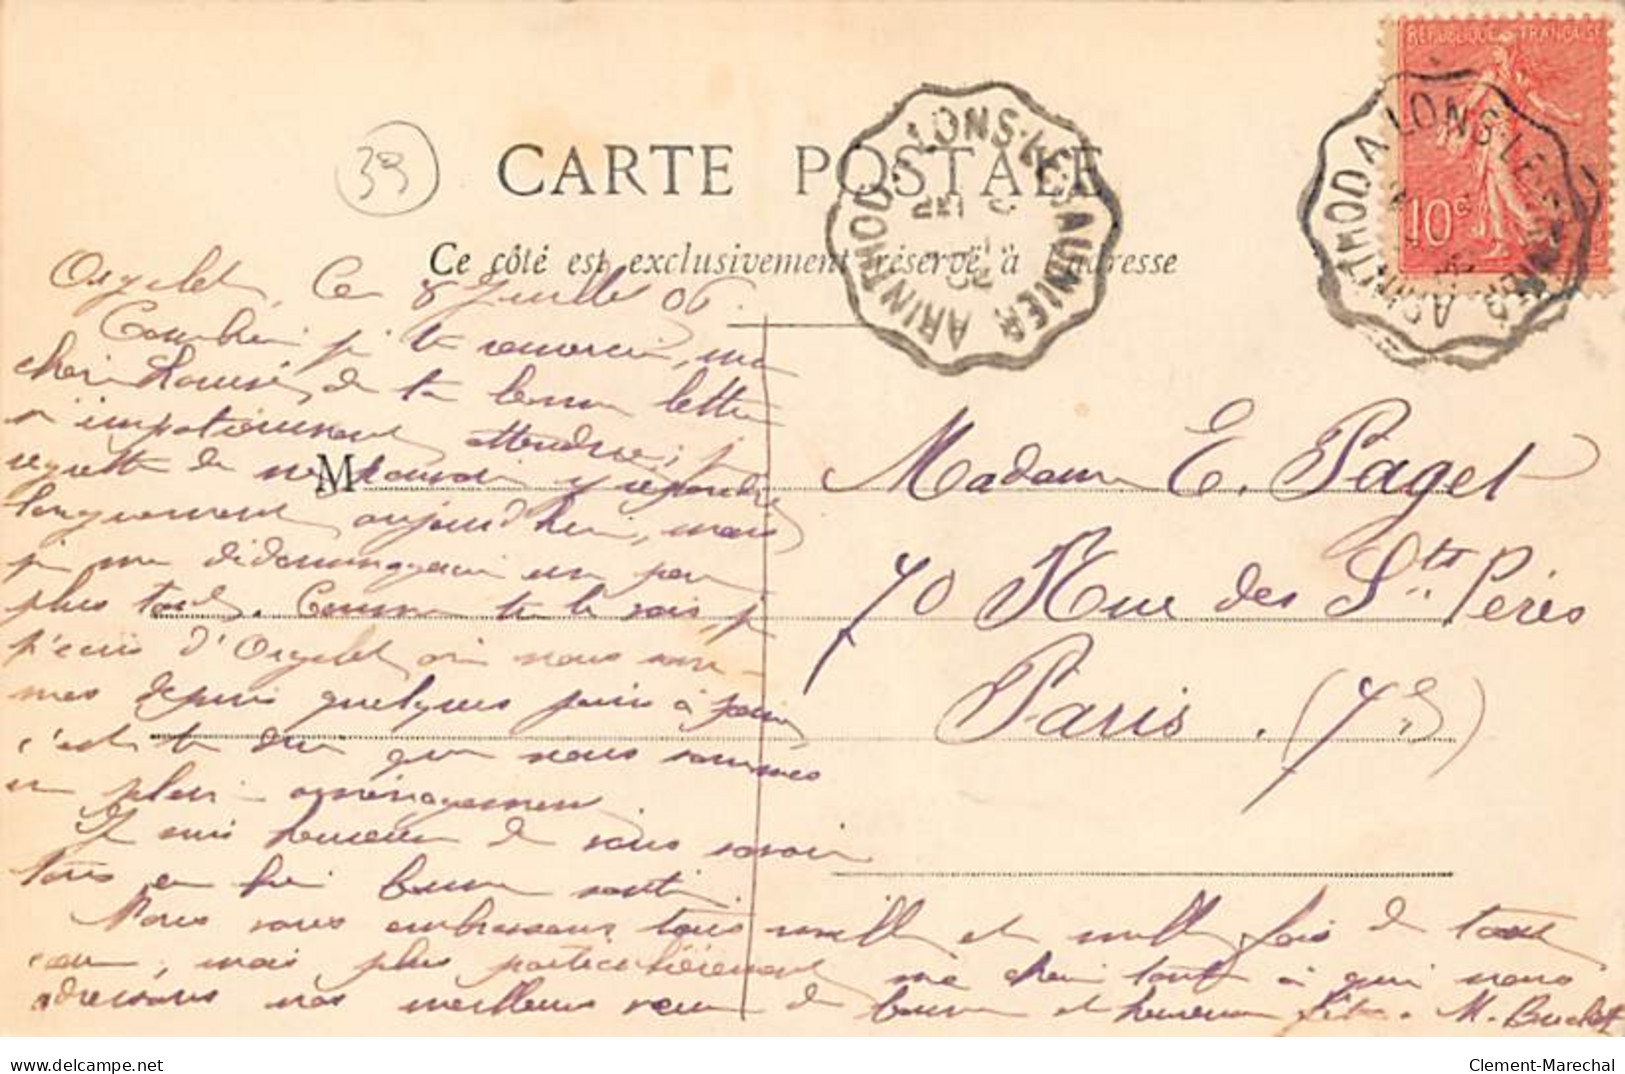 RÉPUBLIQUE FRANÇAISE
10c
ARINTHOD A LONS-LE-SAUNIER
ARINTHOD A LONS-LE-SAUNIER
39
CARTE POSTALE
Ce côté est exclusivement réservé à l'adresse
M
Madame E. Paget
70 Rue des Sts Pères
Paris. (7e)
Orgelet, le 8 Juillet 06.
Combien je te remercie, ma
chère de ta bonne lettre
si impatiemment attendue; je
regrette de ne pouvoir y répondre
longuement aujourd'hui, mais
je me dédommagerai un peu
plus tard. Comme tu le vois, je
t'écris d'Orgelet où nous som-
mes depuis quelques jours à peine
c'est te dire que nous sommes
en plein aménagement
Je suis heureuse de vous savoir
tous en bonne santé.
Nous vous embrassons tous mille et mille fois de tout
cœur, mais plus particulièrement ma chère tante à qui nous
adressons nos meilleurs vœux de bonne et heureuse fête. M. Buchet
Clement-Marechal
delcampe.net